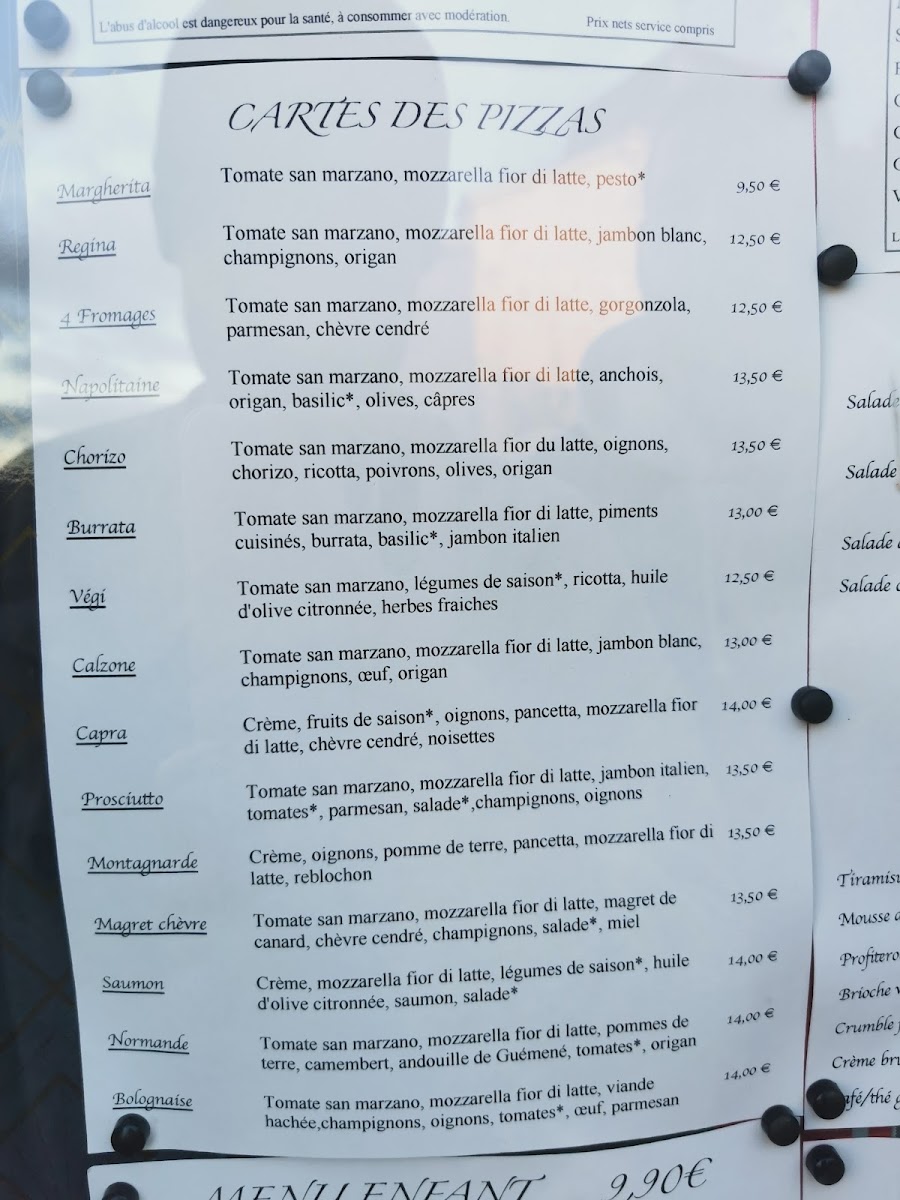 L'abus d'alcool est dangereux pour la santé, à consommer avec modération.
Prix nets service compris
CARTES DES PIZZAS
Margherita Tomate san marzano, mozzarella fior di latte, pesto* 9,50 €
Regina Tomate san marzano, mozzarella fior di latte, jambon blanc, 12,50 €
champignons, origan
4 Fromages Tomate san marzano, mozzarella fior di latte, gorgonzola, 12,50 €
parmesan, chèvre cendré
Napolitaine Tomate san marzano, mozzarella fior di latte, anchois, 13,50 €
origan, basilic*, olives, câpres
Chorizo Tomate san marzano, mozzarella fior du latte, oignons, 13,50 €
chorizo, ricotta, poivrons, olives, origan
Burrata Tomate san marzano, mozzarella fior di latte, piments 13,00 €
cuisinés, burrata, basilic*, jambon italien
Végi Tomate san marzano, légumes de saison*, ricotta, huile 12,50 €
d'olive citronnée, herbes fraiches
Calzone Tomate san marzano, mozzarella fior di latte, jambon blanc, 13,00 €
champignons, œuf, origan
Capra Crème, fruits de saison*, oignons, pancetta, mozzarella fior 14,00 €
di latte, chèvre cendré, noisettes
Prosciutto Tomate san marzano, mozzarella fior di latte, jambon italien, 13,50 €
tomates*, parmesan, salade*,champignons, oignons
Montagnarde Crème, oignons, pomme de terre, pancetta, mozzarella fior di 13,50 €
latte, reblochon
Magret chèvre Tomate san marzano, mozzarella fior di latte, magret de 13,50 €
canard, chèvre cendré, champignons, salade*, miel
Saumon Crème, mozzarella fior di latte, légumes de saison*, huile 14,00 €
d'olive citronnée, saumon, salade*
Normande Tomate san marzano, mozzarella fior di latte, pommes de 14,00 €
terre, camembert, andouille de Guémené, tomates*, origan
Bolognaise Tomate san marzano, mozzarella fior di latte, viande 14,00 €
hachée,champignons, oignons, tomates*, œuf, parmesan
MENU ENFANT 9,90€
Salade
Salade
Salade
Salade
Mousse
Brioche
Crumble
Crème